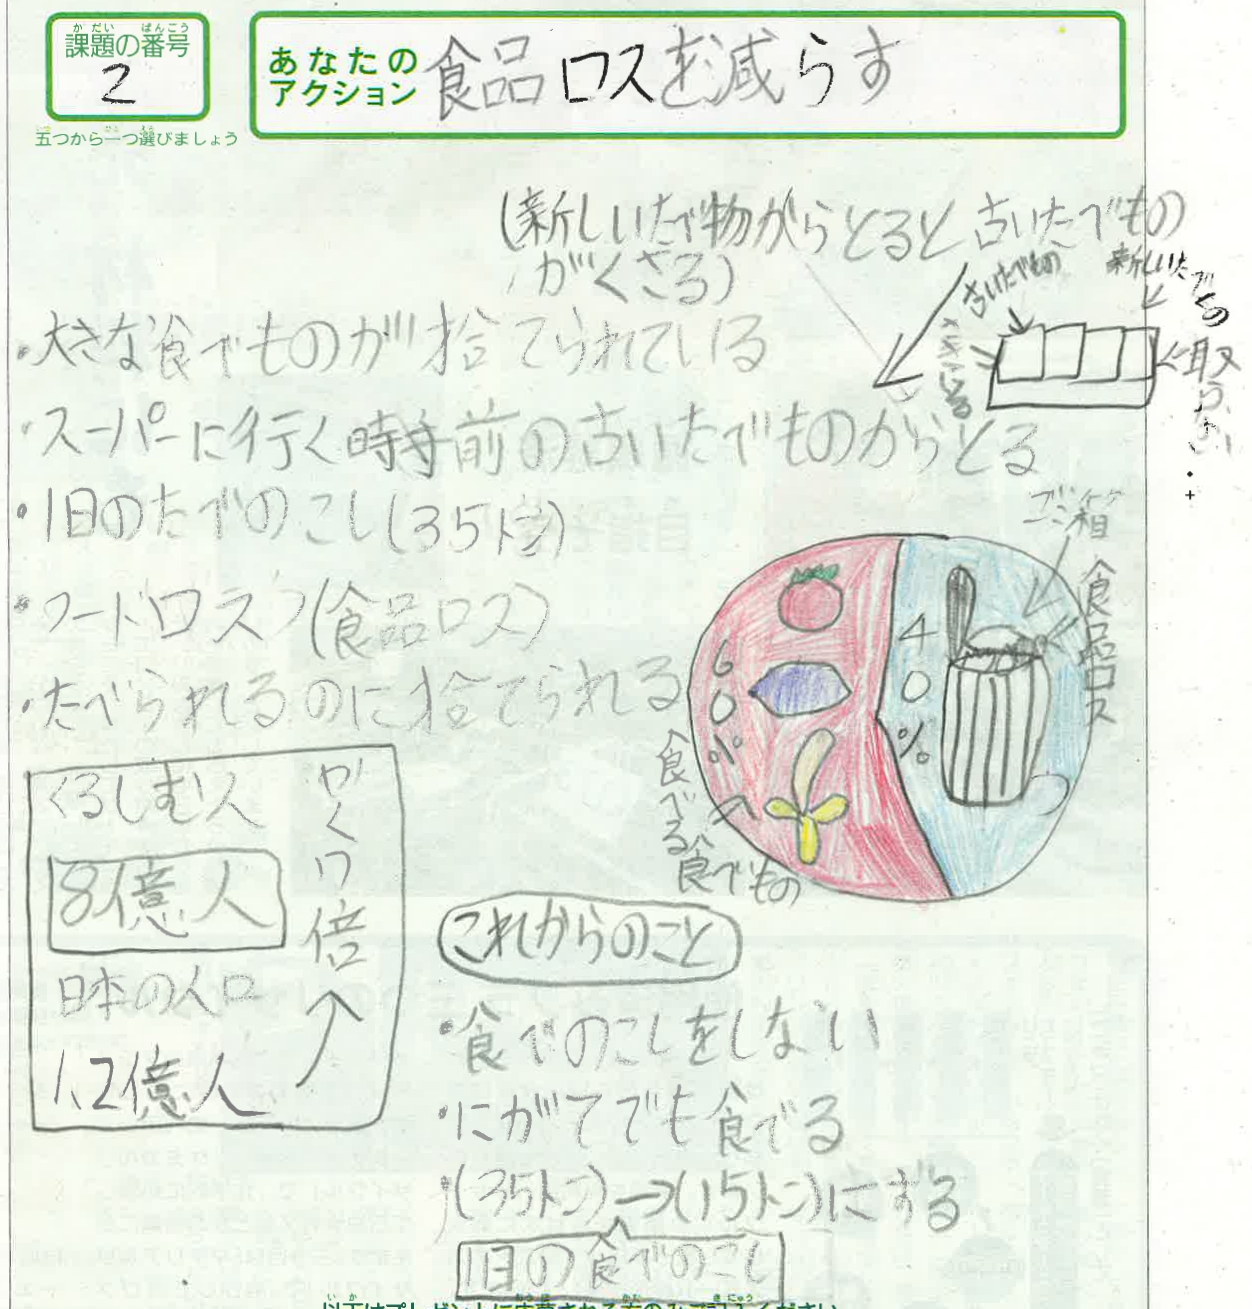 課題の番号
2
五つから一つ選びましょう
あなたの
アクション
食品ロスを減らす
(新しいたで物がらとると古いたでもの
がくさる)
古いたでもの
新しいたでもの
・大きな食でものが捨てられている
・スーパーに行く時手前の古いたでものからとる
・1日のたでのこし(35トン)
・フードロス(食品ロス)
・たべられるのに捨てられる
ゴミ箱
食品ロス
40%
60%
食べる食でもの
くるしむ人
8億人
日本の人口
1.2億人
やく7倍
これからのこと
・食でのこしをしない
・にがてでも食でる
・(35トン)→(15トン)にする
1日の食でのこし